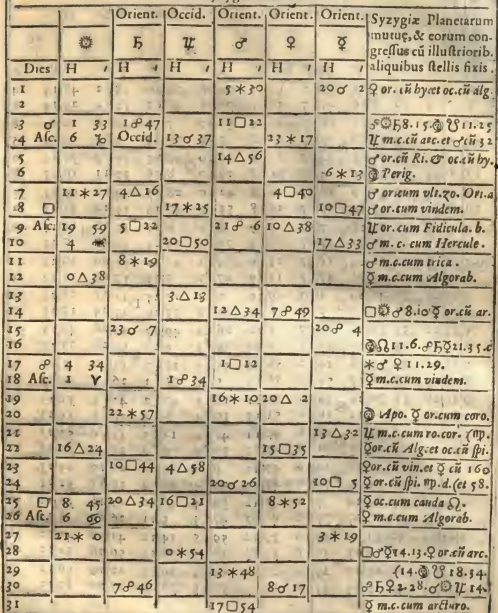 Orient. Occid. Orient. Orient. Orient. Syzygiæ Planetarum
☼ ♄ ♃ ♂ ♀ ☿ mutuę, & eorum con-
gressus cũ illustriorib.
Dies H ′ H ′ H ′ H ′ H ′ H ′ aliquibus stellis fixis.
1 5 ⚹ 30 20 ☌ 2 ♀ or. cũ hyc et oc. cũ alg.
2
3 ☌ 1 33 1 ☍ 47 11 □ 22 ☍ ☼ ♄ 8. 15. ☋ 11. 25
4 Asc. 6 ♑ Occid. 13 ☌ 37 23 ⚹ 17 ♃ m. c. cũ arc. et ♂ cũ 32
5 14 △ 56 ♂ or. cũ Ri. & oc. cũ hy.
6 6 ⚹ 13 Perig.
7 11 ⚹ 27 4 △ 16 4 □ 40 ♂ or. cum vlt. zo. Ori. a
8 □ 17 ⚹ 25 10 □ 47 ♂ or. cum vindem.
9 Asc. 19 59 5 □ 22 21 ☍ 6 10 △ 38 ♃ or. cum Fidicula. b.
10 4 20 □ 50 17 △ 33 ♂ m. c. cum Hercule.
11 8 ⚹ 19 ♂ m. c. cum trica.
12 0 △ 38 ☿ m. c. cum Algorab.
13 3 △ 13
14 12 △ 34 7 ☍ 49 □ ☼ ♂ 8. 10 ☿ or. cũ ar.
15 23 ☌ 7 20 ☍ 4
16 ☊ 11. 6. ☍ ♄ ☿ 21. 35. c
17 ☍ 4 34 1 □ 12 ⚹ ♂ ♀ 11. 29.
18 Asc. 1 ♈ 1 ☍ 34 ☿ m. c. cum vindem.
19 16 ⚹ 10 20 △ 2
20 22 ⚹ 57 Apo. ☿ or. cum coro.
21 13 △ 32 ♃ m. c. cum ro. cor. (♍.
22 16 △ 24 15 □ 35 ♀ or. cũ Alg: et oc. cũ spi.
23 10 □ 44 4 △ 58 ♀ or. cũ vin. et ☿ cũ 160
24 20 ☌ 26 10 □ 5 ♀ or. cũ spi. ♍. d. (et 58.
25 □ 8 45 20 △ 34 16 □ 21 8 ⚹ 52 ☿ oc. cum cauda ♌.
26 Asc. 6 ♋ ♀ m. c. cum Algorab.
27 21 ⚹ 0 3 ⚹ 19
28 0 ⚹ 54 □ ♂ ☿ 14. 13. ♀ or. cũ arc.
29 13 ⚹ 48 (14. ☋ 18. 54.
30 7 ☍ 46 8 ☌ 17 ☍ ♄ ♀ 2. 28. ☌ ☼ ♃ 14.
31 17 □ 54 ☿ m. c. cum arcturo.